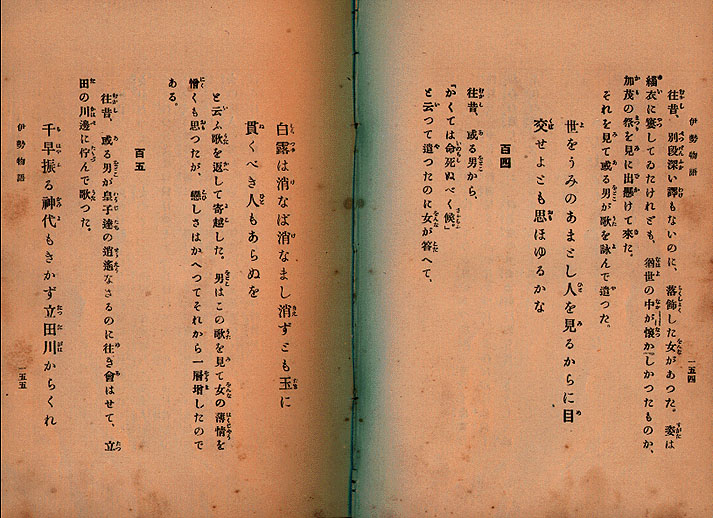 伊勢物語
一五四
往昔、別段深い譯もないのに、落飾した女があつた。姿は
緇衣に窶してゐたけれども、猶世の中が懷かしかつたものか、
加茂の祭を見に出懸けて來た。
それを見て或る男が歌を詠んで遣つた。
世をうみのあまとし人を見るからに目
交せよとも思ほゆるかな
百四
往昔、或る男から、
「かくては命死ぬべく候」
と云つて遣つたのに女が答へて、
白露は消なば消なまし消ずとも玉に
貫くべき人もあらぬを
と云ふ歌を返して寄越した。男はこの歌を見て女の薄情を
憎くも思つたが、戀しさはかへつてそれから一層增したので
ある。
百五
往昔、或る男が皇子達の逍遙なさるのに往き會はせて、立
田の川邊に佇んで歌つた。
千早振る神代もきかず立田川からくれ
伊勢物語
一五五